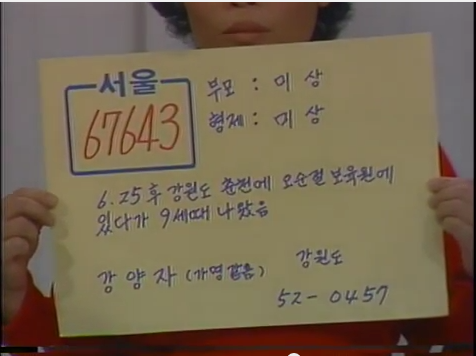 서울
67643
부모 : 미상
형제 : 미상
6.25후 강원도 춘천에 오순절 보육원에
있다가 9세때 나왔음
강양자 (가명같음) 강원도
52-0457